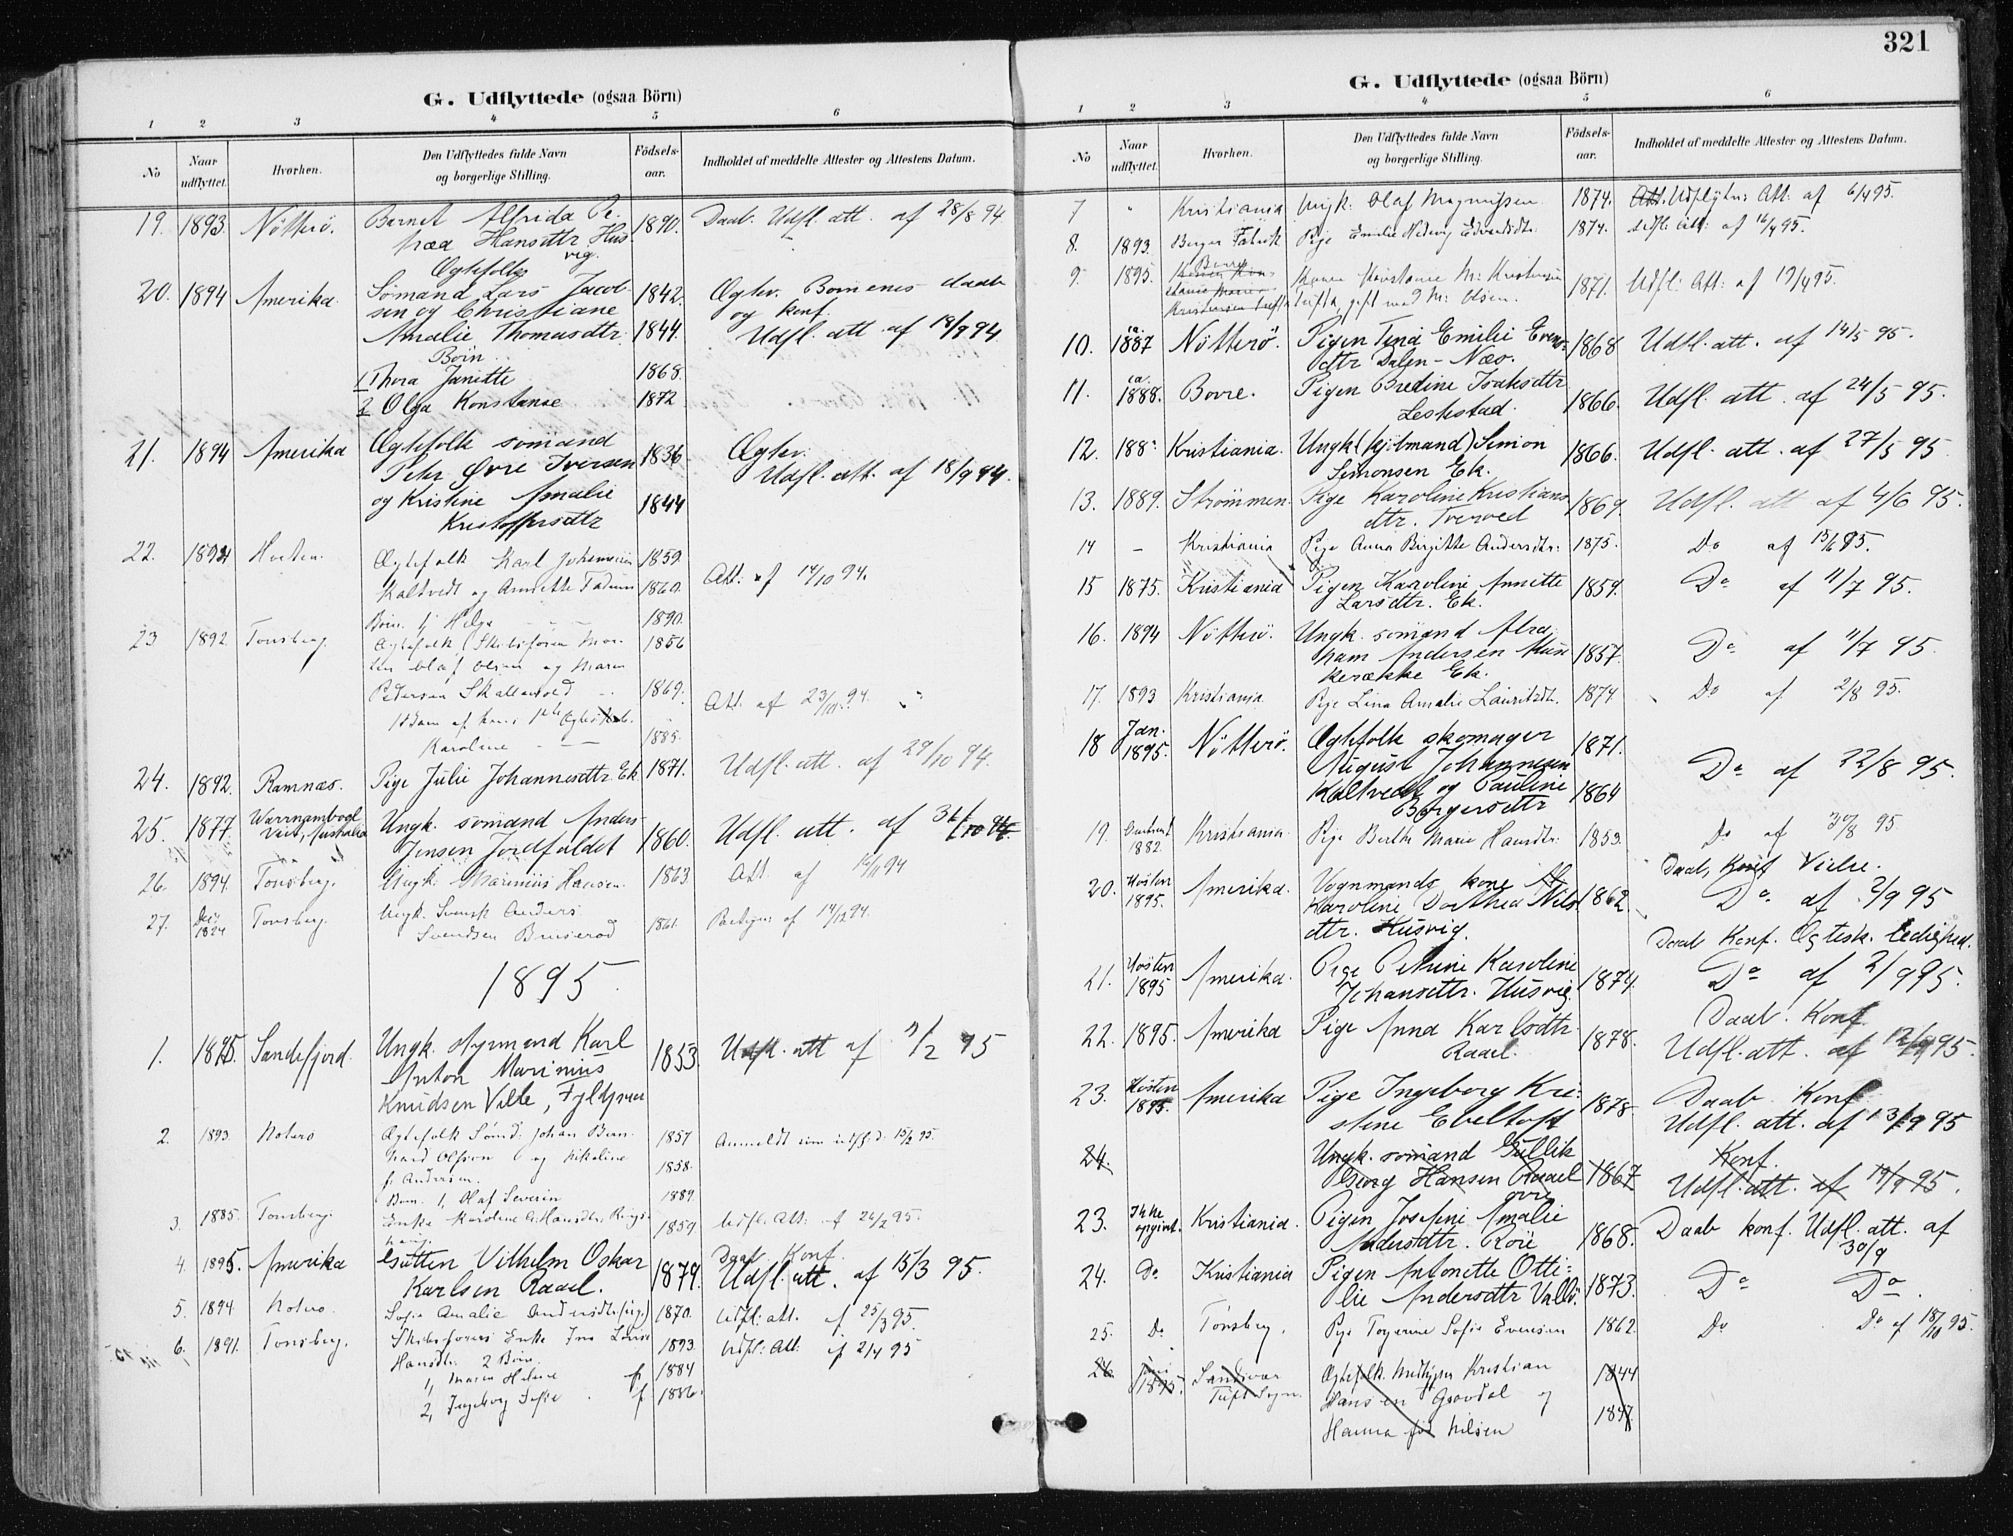 321
G. Udflyttede (ogsaa Börn)
1 2 3 4 5 6
No Naar udflyttet. Hvorhen. Den Udflyttedes fulde Navn og borgerlige Stilling. Födsels-aar. Indholdet af meddelte Attester og Attestens Datum.
19. 1893. Nötterö. Barnet Alfrida Pe- 1890. Daab. Udfl. att. af 28/8 94
træa Hansdtr Hus-
vig.
Ægtefolk
20. 1894 Amerika. Sömand Lars Jacob- 1842. Ægtev. Börnenes daab
sen og Christiane og konf.
Amalie Thomasdtr. 1844. Udfl. att. af 14/9 94
Börn
1 Thora Janitte 1868.
2 Olga Konstanse 1872
21. 1894 Amerika Ægtefolk sömand 1836 Ægtev.
Peter Øvre Iversen Udfl. att. af 18/9 94.
og Kristine Amalie 1844
Kristoffersdtr
22. 1894 Horten. Ægtefolk Karl Johannesen 1859
Kaltvedt og Annette 1860. Att. af 14/10 94.
Börn. 1) Helga 1890.
23 1892. Tönsberg. Ægtefolk Skibsförer Mor- 1856
ten Olaf Olsen og Maren
Pedersen Skallevold 1869. Att. af 23/10 94.
1 Barn af hans 1ste Ægteskab.
Karoline 1888.
24. 1892. Ramnæs. Pige Julie Johannesdtr Ek 1871. Udfl. att. af 29/10 94.
25. 1877. Warrnambool Vict, Australia Ungk. sömand Anders 1860. Udfl. att. af 31/10 94.
Jensen Jordfaldet
26. 1894. Tönsberg. Ungk. Marinius Hansen. 1863 Att. af 15/11 94
27. Tönsberg. Ungk. Svensk Anders 1861. af 14/12 94.
Svendsen Bruseröd
1895.
1. 1895. Sandefjord. Ungk. styrmand Karl 1853. Udfl. att af 11/2 95
Anton Marinius
Knudsen Velle,
2. 1893. Noterö Ægtefolk Sömd. Johan Bern- 1857 Anmeldt som udfl. d. 15/2 95.
hard Olsen og Nikoline 1858.
f. Andersen.
Barn. 1, Olaf Severin 1889.
3. 1885. Tönsberg. Enke Karoline A. Hansdtr. 1859 Udfl. Att. af 26/2 95.
4. 1895. Amerika Gutten Vilhelm Oskar Daab. Konf.
Karlsen Raael. 1879. Udfl. att. af 15/3 95.
5. 1894. Noterö. Sofie Amalie Andersdtr (ug.) 1870. Udfl. att. af 25/3 95.
6. 1891. Tönsberg. Skibsförers Enke Louise 1893. Udfl. Att. af 2/4 95
Hansdtr. 2 Börn.
1, Maren Helene f. 1884
2, Ingeborg Sofie f. 1886.
G. Udflyttede (ogsaa Börn)
1 2 3 4 5 6
No Naar udflyttet. Hvorhen. Den Udflyttedes fulde Navn og borgerlige Stilling. Födsels-aar. Indholdet af meddelte Attester og Attestens Datum.
7 " Kristiania Ungk. Olaf Magnussen 1874. Att. Udflytn. Att. af 6/4 95.
8. 1893. Berger Fabrik Pige Emilie Hedvig Edvardsdtr. 1874. Udfl. att. af 16/4 95.
9. 1895. Borre 1871. Udfl. Att. af 19/4 95.
gift med M. Olsen.
10. ca. 1887 Nötterö. Pigen Tina Emilie Evens- 1868 Udfl. att. af 14/5 95.
dtr Dalen - Næs.
11. ca. 1888. Borre. Pigen Bredine Isaksdtr 1866. Udfl. att. af 24/5 95.
Leskstad.
12. 188- Kristiania. Ungk. (kjöbmand) Simon 1866. Udfl. att. af 27/5 95
Simonsen Ek.
13. 1889. Strömmen. Pige Karoline Kristians 1869. Udfl. att af 4/6 95.
dtr. Tverved
14 - Kristiania Pige Anna Birgitte Andersdtr. 1875. Do af 15/6 95.
15 1875. Kristiania Pigen Karoline Annette 1859. Do af 11/7 95.
Larsdtr. Ek.
16. 1894 Nötterö. Ungk. sömand Abra- 1857. Do af 11/7 95.
ham Andersen Hun-
kerække Ek.
17. 1893 Kristiania. Pige Lina Amalie Lauritsdtr. 1874 Do af 2/8 95.
18 Jan. 1895. Nötterö. Ægtefolk skomager 1871.
August Johannesen Do af 22/8 95.
Kaltvedt og Pauline 1864
Borgersdtr
19. 1882. Kristiania. Pige Berthe Marie Hansdtr. 1853. Do af 30/8 95.
Daab, Konf Vielse.
20. Hösten 1895. Amerika. Vognmands kone 1862. Do. af 2/9 95
Karoline Dorthea Nils-
dtr. Husvig. Daab Konf. Ægtesk. ledighed.
21. Hösten 1895 Amerika. Pige Petrine Karoline 1874. Do af 2/9 95.
Johansdtr. Husvig. Daab. Konf
22. 1895. Amerika Pige Anna Karlsdtr. 1878. Udfl. att. af 12/9 95.
Raael.
23. Hösten 1895. Amerika Pige Ingeborg Kri- 1878. Daab. Konf
stine Ebeltoft Udfl. att. af 13/9 95
24. Ungk. sömand Gullik Konf.
Georg Hansen Raael 1867 Udfl. att. af 14/9 95.
övre
23. Ikke opgivet. Kristiania. Pigen Josefine Amalie 1868. Daab konf. Udfl. att. af
Andersdtr. Röie 30/9
24. Do Kristiania Pigen Antonette Otti- 1873. Do Do.
lie Andersdtr Vallö.
25. Do Tönsberg. Pige Torgerine Sofie Evensen 1862. Do Do af 18/10 95.
26. Juni 1895. Sandsvær Tuft Sogn. Ægtefolk Kristian 1844
Hansen Gravdal og
Hanna född Nilsen 1847.